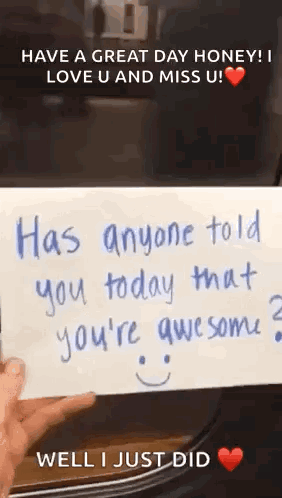 HAVE A GREAT DAY HONEY! I
LOVE U AND MISS U!❤️
Has anyone told
you today that
you're awesome?
WELL I JUST DID ❤️